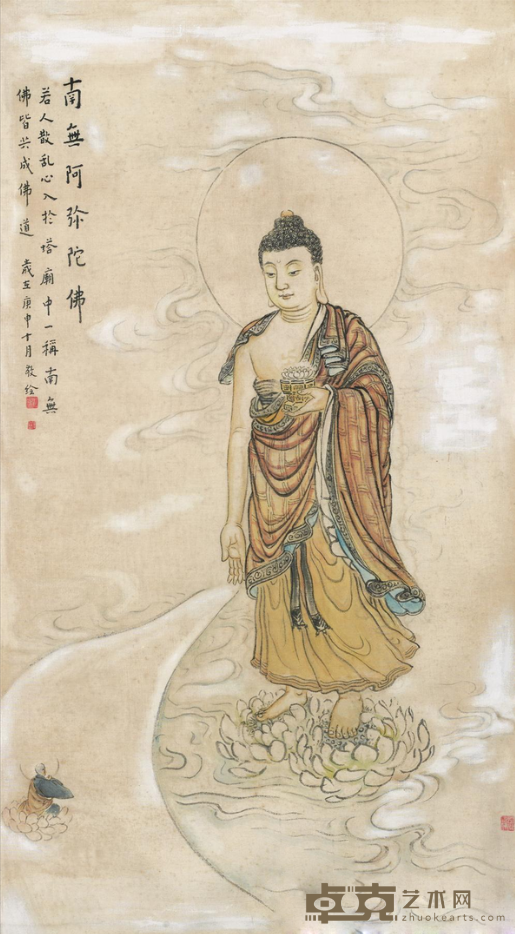 南無阿弥陀佛
若人散乱心入於塔廟中一稱南無
佛皆共成佛道 歲在庚申十月敬绘
卓克艺术网
zhuokearts.com